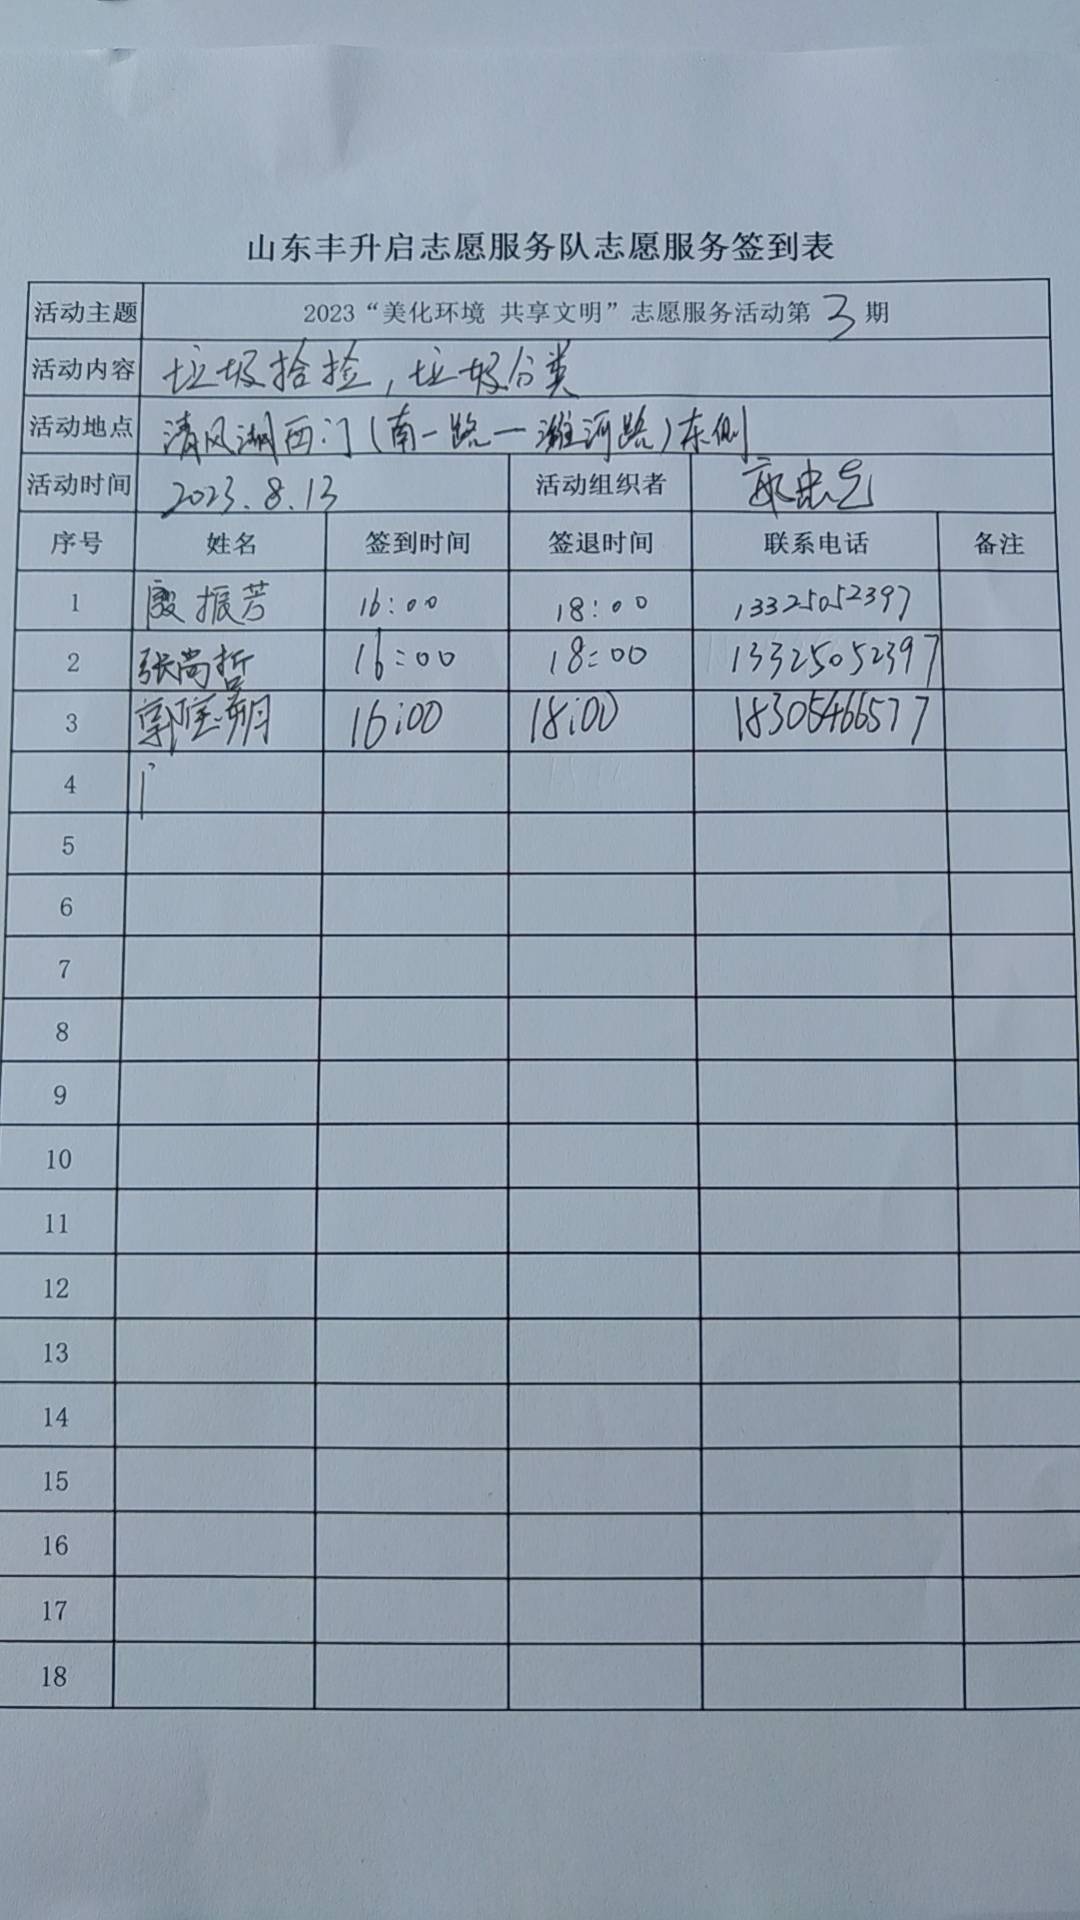 山东丰升启志愿服务队志愿服务签到表
活动主题 2023“美化环境 共享文明”志愿服务活动第3期
活动内容 垃圾拾捡，垃圾分类
活动地点 清风湖西门(南一路—潍河路)东侧
活动时间 2023.8.13 活动组织者
序号 姓名 签到时间 签退时间 联系电话 备注
1 殷振芳 16:00 18:00 13325052397
2 张尚哲 16:00 18:00 13325052397
3 16:00 18:00 18305466577
4
5
6
7
8
9
10
11
12
13
14
15
16
17
18